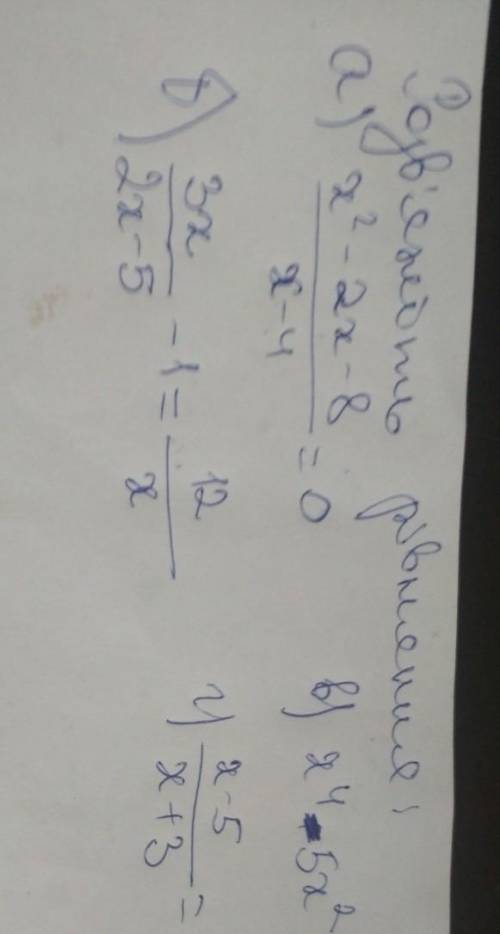 Розв'яжіть рівняння:
а) (x² - 2x - 8)/(x - 4) = 0    в) x⁴ - 5x²
б) 3x/(2x - 5) - 1 = 12/x    г) (x - 5)/(x + 3) =